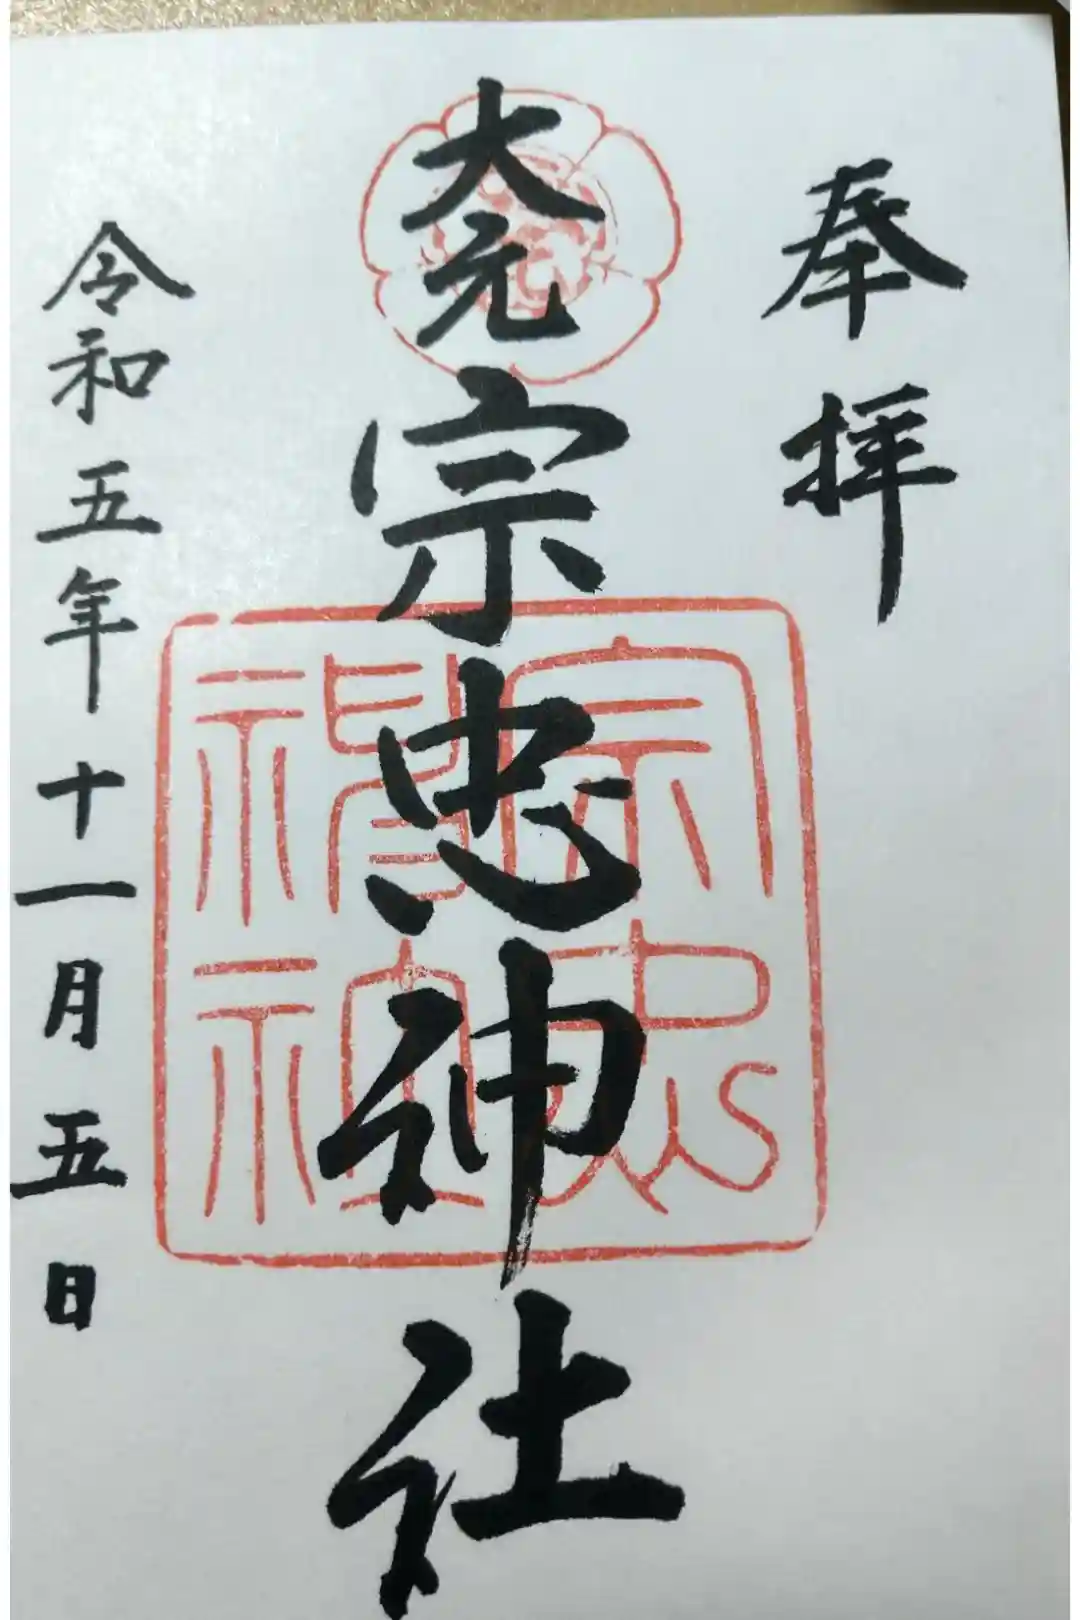 奉拝
大元
宗忠神社
宗忠
神社
令和五年十一月五日